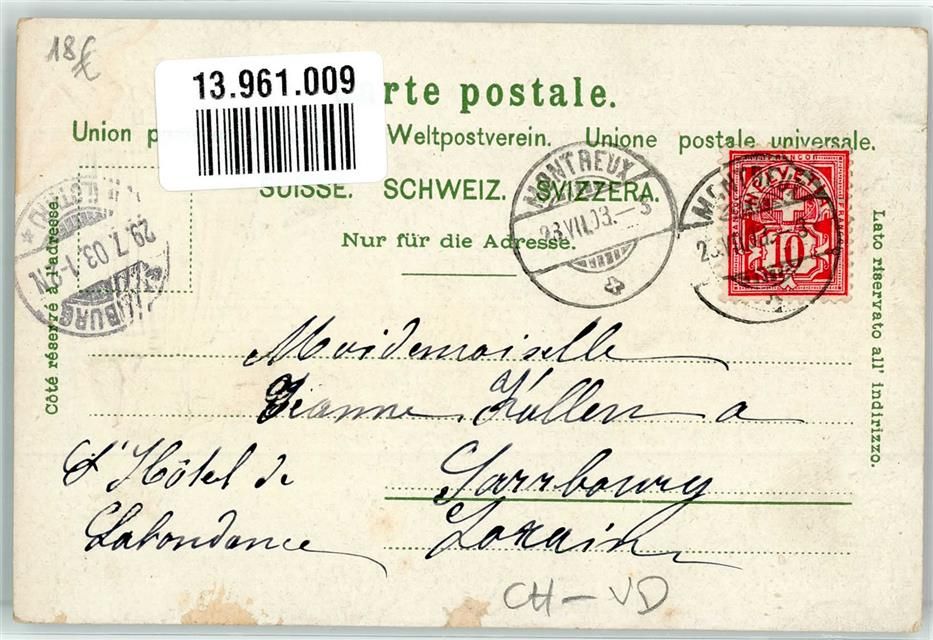 18€
13.961.009
rte postale.
Union p Weltpostverein. Unione postale universale.
SUISSE. SCHWEIZ. SVIZZERA.
Nur für die Adresse.
Côté réservé à l'adresse.
Lato riservato all' indirizzo.
MONTREUX
23.VII.03.-3
MONTREUX
23.VII.03.-3
FRANCO
10
29.7.03.1-2N.
BURG
Maidemoiselle
Jeanne Kullen a
l'Hôtel de Sarrbourg
Labondance Lorain
CH-VD